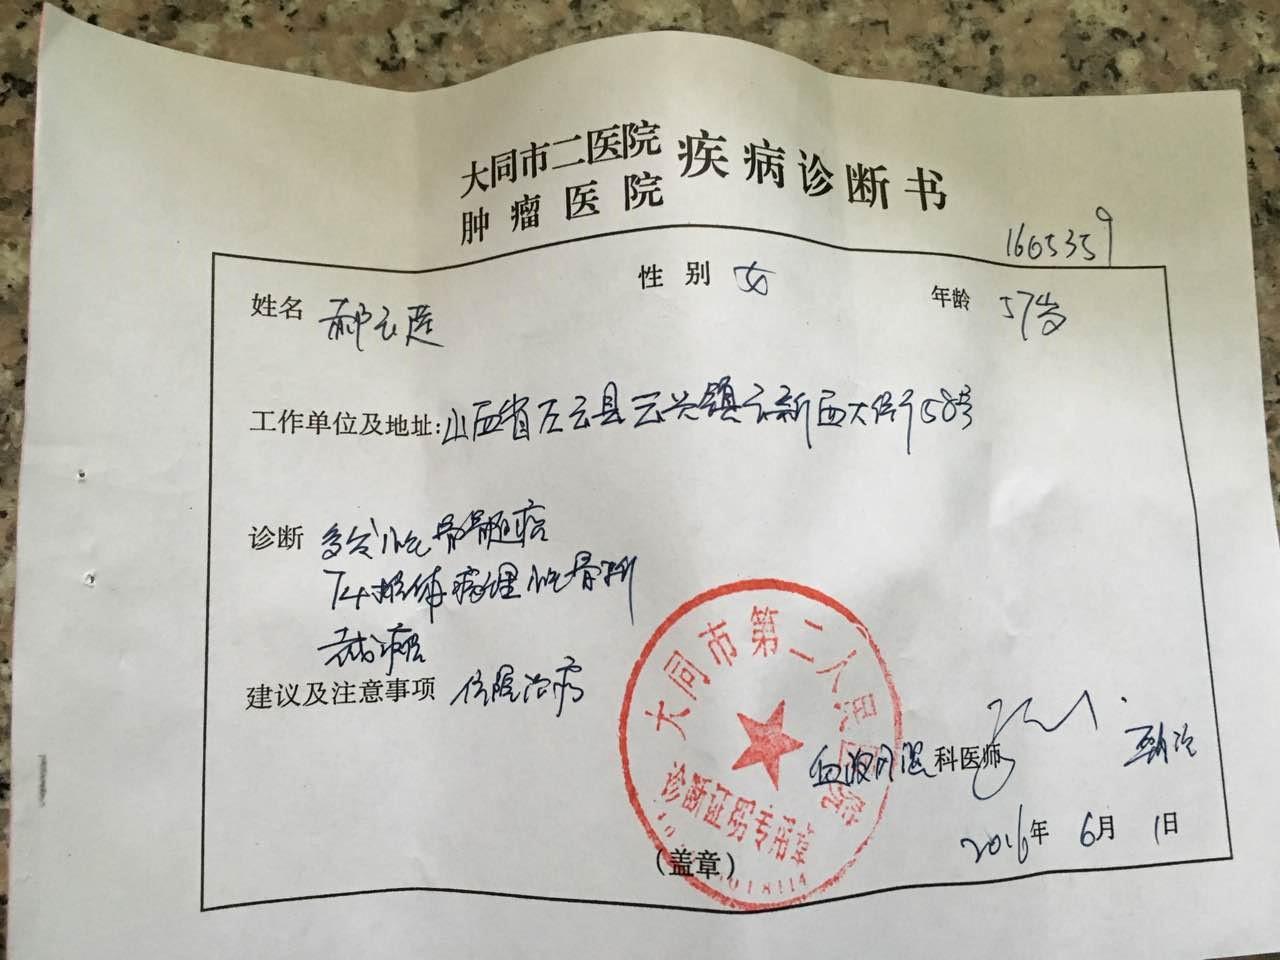 大同市二医院
肿瘤医院
疾病诊断书
1605359
姓名 郝云莲
性别 女
年龄 57岁
工作单位及地址:山西省左云县云兴镇云新西大街58号
诊断 多发性骨髓瘤
T4椎体病理性骨折
建议及注意事项 住院治疗
大同市第二人民医院
诊断证明专用章
科医师
2016年 6月 1日
(盖章)